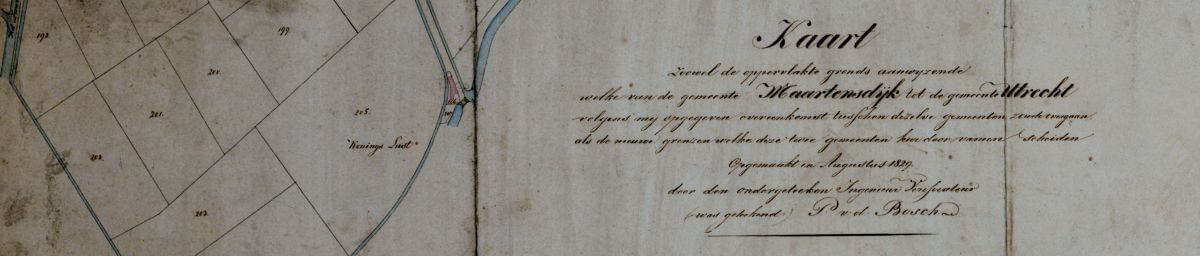 Kaart
Zoowel de oppervlakte gronds aanwyzende
welke van de gemeente Maartensdÿk tot de gemeente Utrecht
volgens mij opgegeven overeenkomst tusschen dezelve gemeenten zoude overgaan
als de nieuwe grenzen welke deze twee gemeenten hierdoor scheiden
Opgemaakt in Augustus 1829.
door den ondergeteeken Ingenieur
(was getekend) P. v. d. Bosch
198.
199.
200.
201.
202.
203.
205.
Konings Lust